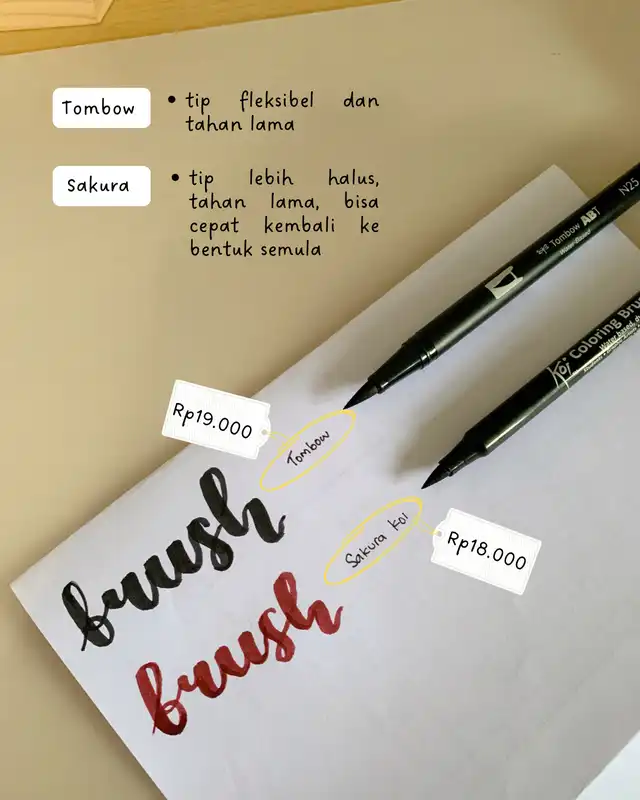 Tombow
• tip fleksibel dan
tahan lama
Sakura
• tip lebih halus,
tahan lama, bisa
cepat kembali ke
bentuk semula
N25
Tombow ABT
Koi Coloring Bru
Rp19.000
Tombow
Sakura Koi
Rp18.000
brush
brush